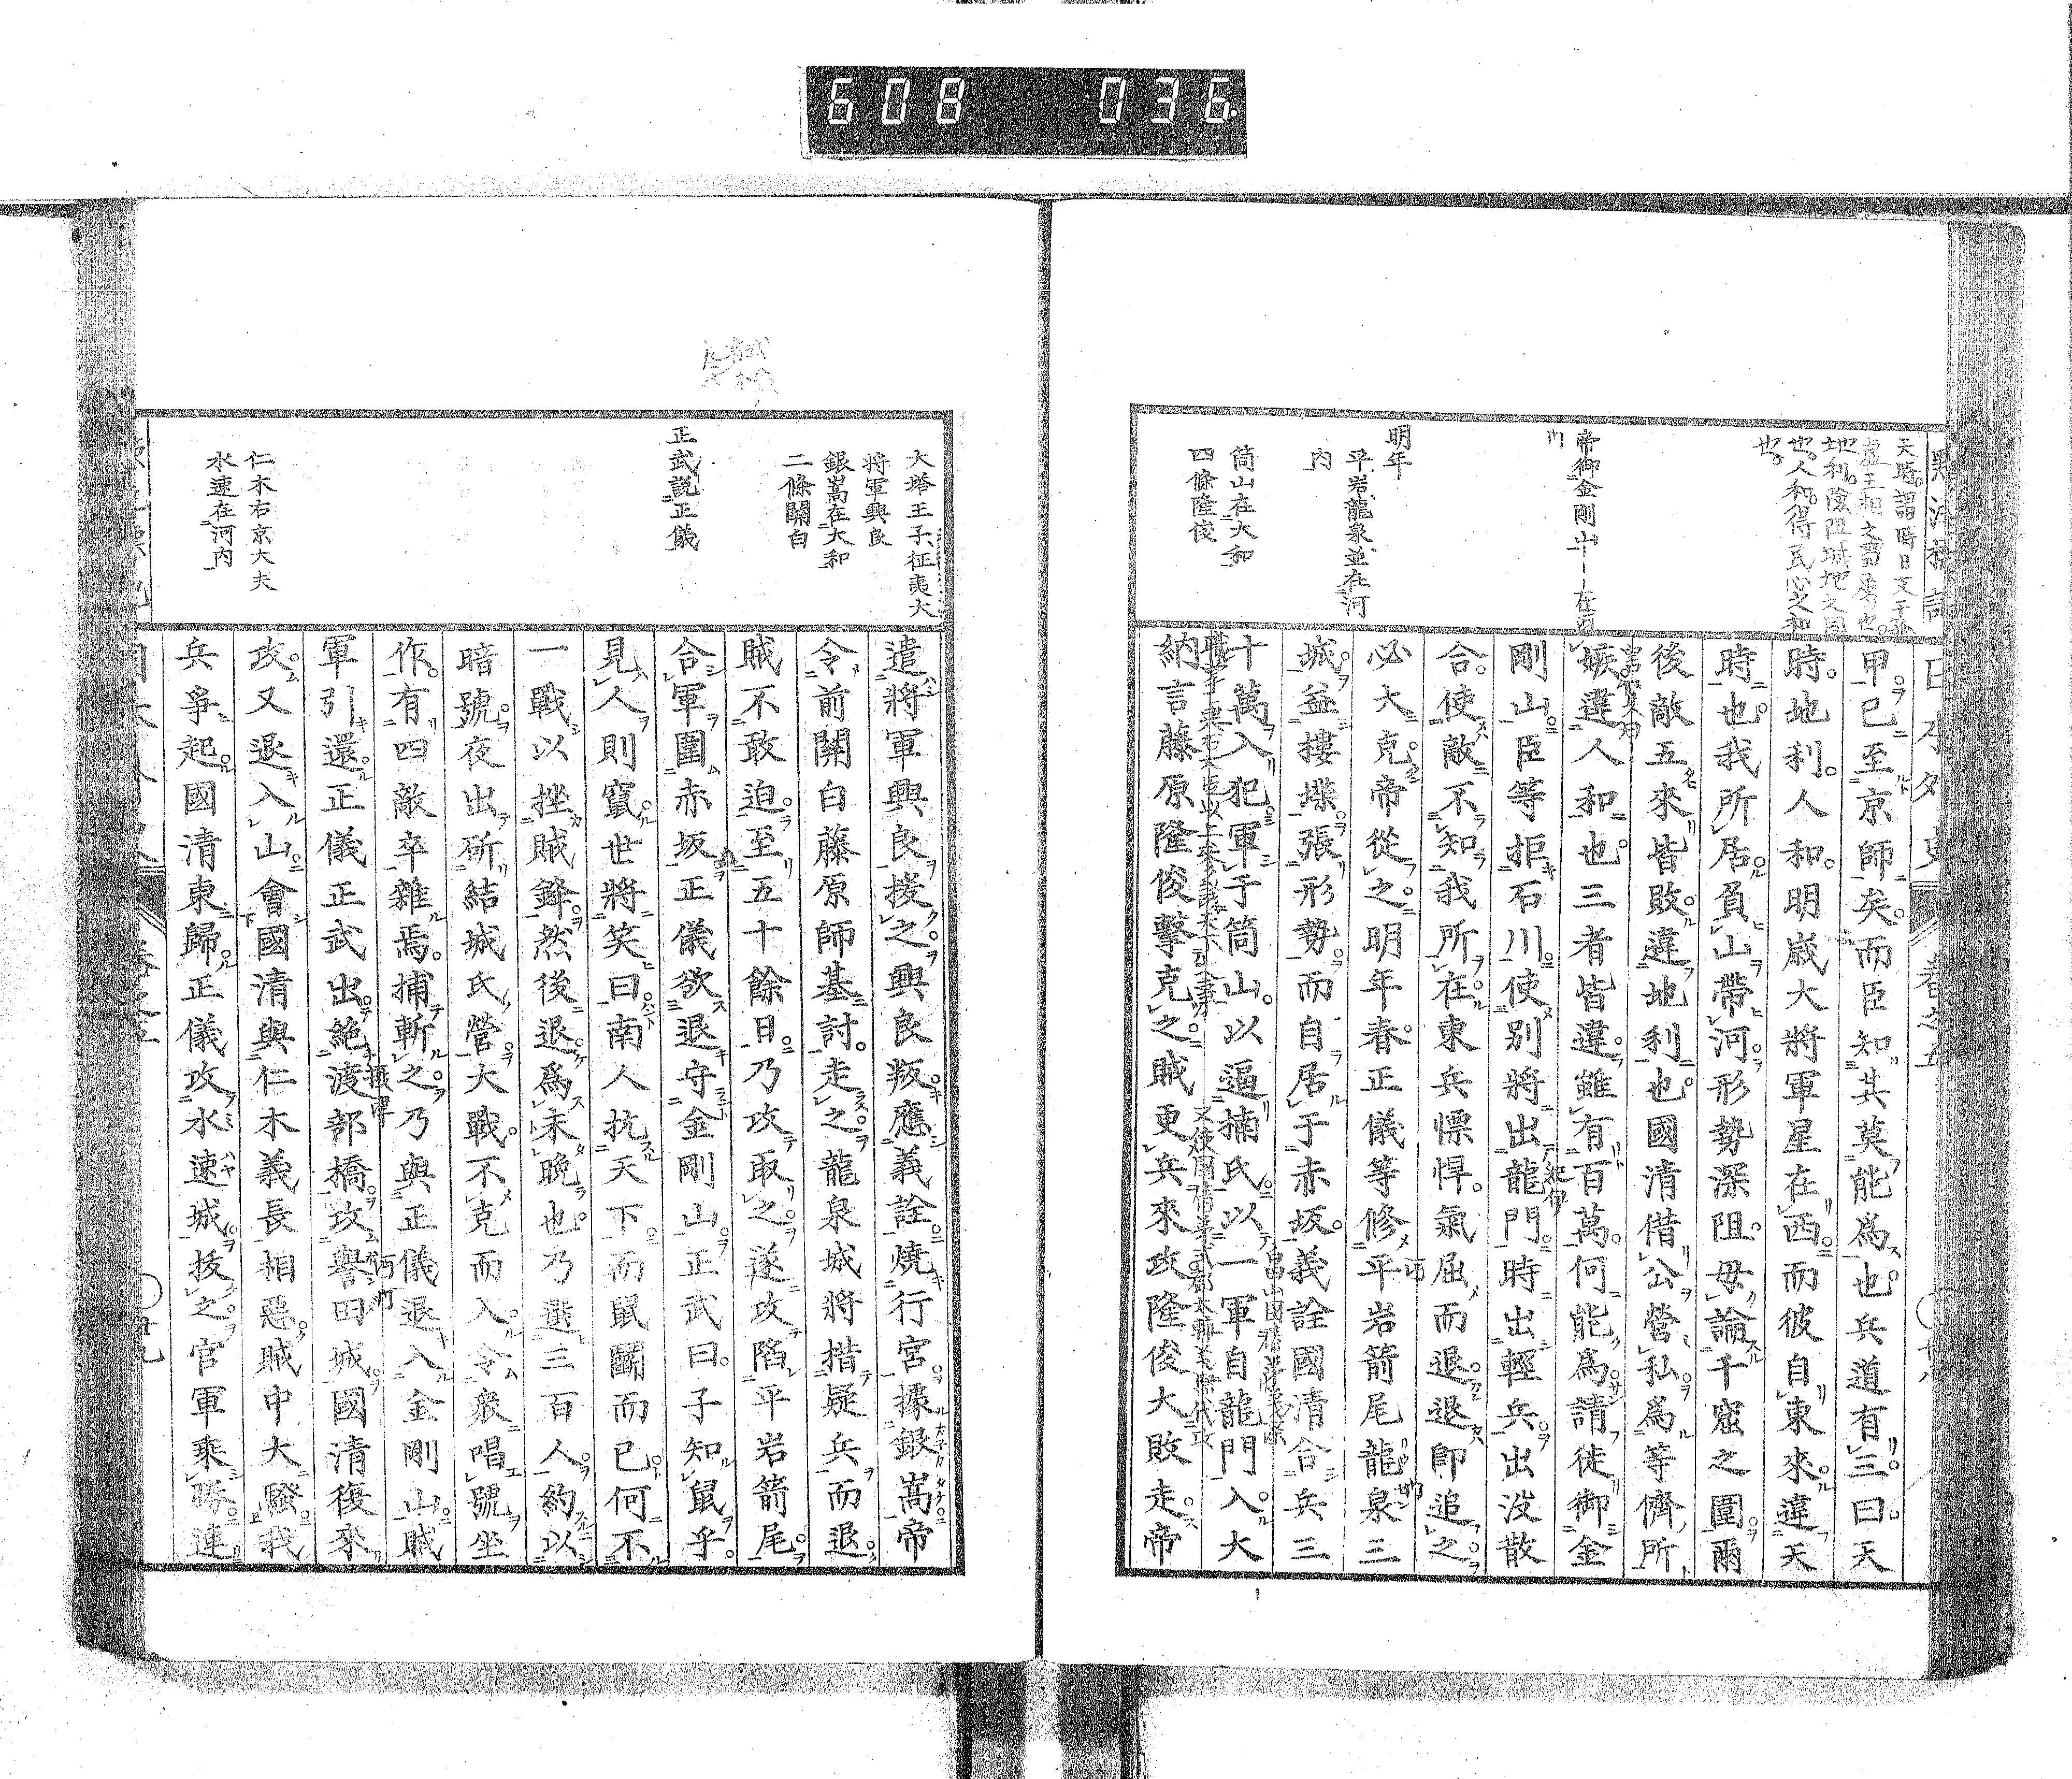 608 036
天時謂時日支干孤
虛王相之
地利險阻城池之固
也人和得民心之和
也
帝御金剛山在河
内
明年
平岩龍泉並在河
内
筒山在大和
四條隆俊
甲已至京師矣而臣知其莫能爲也兵道有三曰天
時地利人和明歲大將軍星在西而彼自東來違天
時也我所居負山帶河形勢深阻毋論千窟之圍爾
後敵五來皆敗違地利也國清借公營私爲等儕所
嫉違人和也三者皆違雖有百萬何能爲請徒御金
剛山臣等拒石川使別將出龍門時出輕兵出没散
合使敵不知我所在東兵慓悍氣屈而退退即追之
必大克帝從之明年春正儀等修平岩箭尾龍泉三
城益摟堞張形勢而自居于赤坂義詮國清合兵三
十萬入犯軍于筒山以逼楠氏以一軍自龍門入大
納言藤原隆俊擊克之賊更兵來攻隆俊大敗走帝
大塔王子征夷大
將軍興良
銀嵩在大和
二條關白
正武説正儀
仁木右京大夫
水速在河内
遣將軍興良援之興良叛應義詮燒行宮據銀嵩帝
令前關白藤原師基討走之龍泉城將措疑兵而退
賊不敢迫至五十餘日乃攻取之遂攻陷平岩箭尾
合軍圍赤坂正儀欲退守金剛山正武曰子知鼠乎
見人則竄世將笑曰南人抗天下而鼠鬭而已何不
一戰以挫賊鋒然後退爲未晩也乃選三百人約以
暗號夜出斫結城氏營大戰不克而入令衆唱號坐
作有四敵卒雜焉捕斬之乃與正儀退入金剛山賊
軍引還正儀正武出絶渡部橋攻譽田城國清復來
攻又退入山會國清與仁木義長相惡賊中大騷我
兵爭起國清東歸正儀攻水速城拔之官軍乘勝連